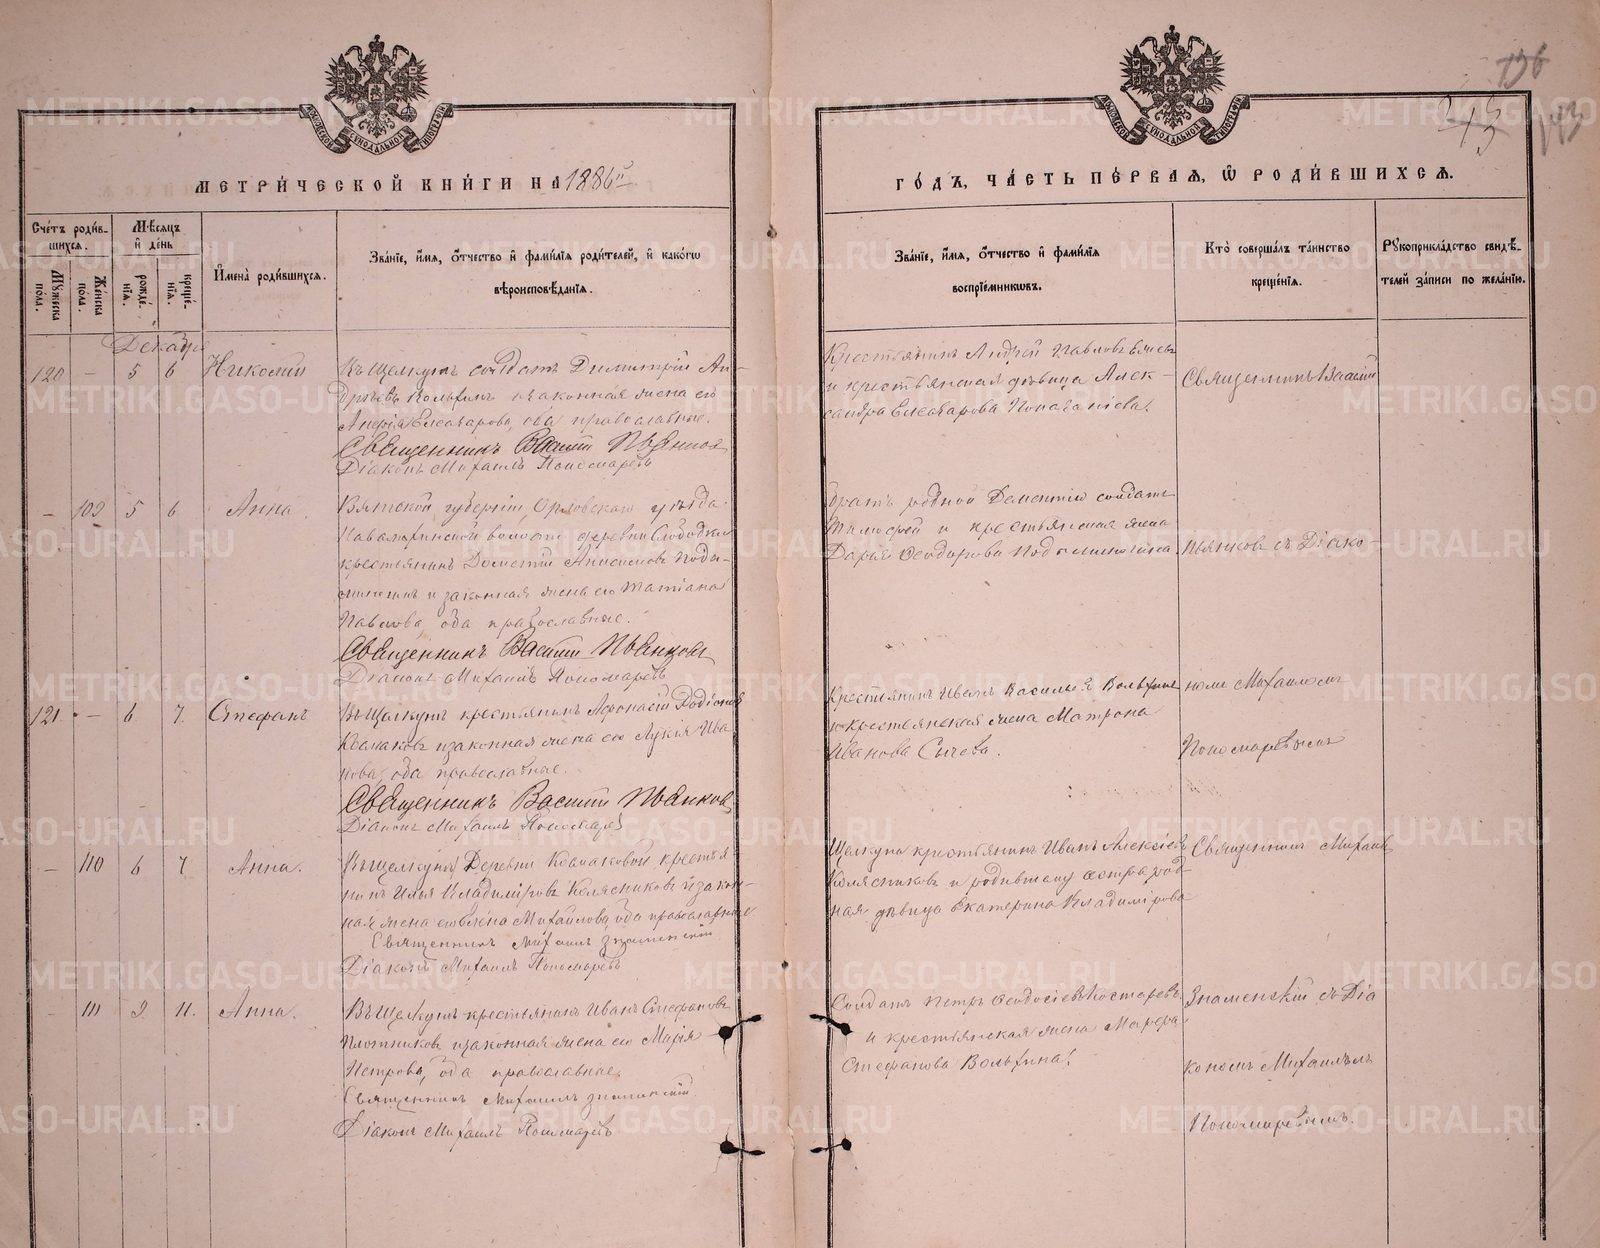 136
243
143
МОСКОВСКОЙ СѴНОДАЛЬНОЙ ТИПОГРАФІИ
МОСКОВСКОЙ СѴНОДАЛЬНОЙ ТИПОГРАФІИ
МЕТРИ́ЧЕСКОЙ КНИ́ГИ НА 1886й
ГО́ДЪ, ЧА́СТЬ ПЕ́РВАЯ, Ѡ РОДИ́ВШИХСЯ.
Сче́тъ роди́в-
шихся.
Мѣ́сяцъ
и де́нь
Му́жеска по́ла.
Же́нска по́ла.
рожде́-
нія.
креще́-
нія.
И҆мена̀ роди́вшихся.
Зва́ніе, и҆́мя, ѻ҆́тчество и҆ фами́лія роди́телей, и҆ како́гѡ
вѣроисповѣ́данія.
Зва́ніе, и҆́мя, ѻ҆́тчество и҆ фами́лія
воспріе́мниковъ.
Кто̀ соверша́лъ та́инство
креще́нія.
Рꙋкоприкла́дство свидѣ́-
телей за́писи по жела́нію.
Декабр
120 — 5 6 Николай
Въ Щелкунѣ солдатъ Димитрій Ан-
дреевъ Вольхинъ и законная жена его
Елеазарова, оба православные.
Священникъ Василій Пьянков
Діаконъ Михаилъ Пономаревъ
Крестьянинъ Андрей Павловъ
и крестьянская дѣвица Алек-
сандра Елеазарова
Священникъ Василій
— 109 5 6 Анна
Вятской губерніи, Орловскаго уѣзда
волости деревни Слободки
крестьянинъ Дометій Анисимовъ
и законная жена его Татіана
Павлова, оба православные.
Священникъ Василій Пьянковъ
Діаконъ Михаилъ Пономаревъ
Братъ родной Дометію солдатъ
Тимофей и крестьянская жена
Дарья Ѳеодорова
Пьянковъ съ Діако-
121 — 6 7. Стефанъ
Въ Щелкунѣ крестьянинъ Афонасій Родіонов
Колмаковъ и законная жена его Лукія Ива
нова, оба православные.
Священникъ Василій Пьянков
Діаконъ Михаилъ Пономаревъ
Крестьянинъ Иванъ Васильевъ Вольхинъ
и крестьянская жена Матрона
Иванова Сычева.
номъ Михаиломъ
Пономаревымъ
— 110 6 7 Анна.
Въ Щелкунѣ Деревни Колмаковой крестья
нинъ Илья Владиміровъ Колясниковъ и закон-
ная жена его Елена Михайлова, оба православные
Священникъ Михаилъ Знаменскій
Діаконъ Михаилъ Пономаревъ
Щелкуна крестьянинъ Иванъ Алексіевъ
Колясниковъ и родившему сестра род-
ная дѣвица Екатерина Владимірова
Священникъ Михаил
— 111 9 11. Анна.
Въ Щелкунѣ крестьянинъ Иванъ Стефановъ
Плотниковъ и законная жена его Марія
Петрова, оба православные.
Священникъ Михаилъ Знаменскій
Діаконъ Михаилъ Пономаревъ
Солдатъ Петръ Ѳеодосіевъ Костаревъ
и крестьянская жена Марфа
Стефанова Вольхина.
Знаменскій съ Діа
кономъ Михаиломъ
Пономаревымъ.
METRIKI.GASO-URAL.RU